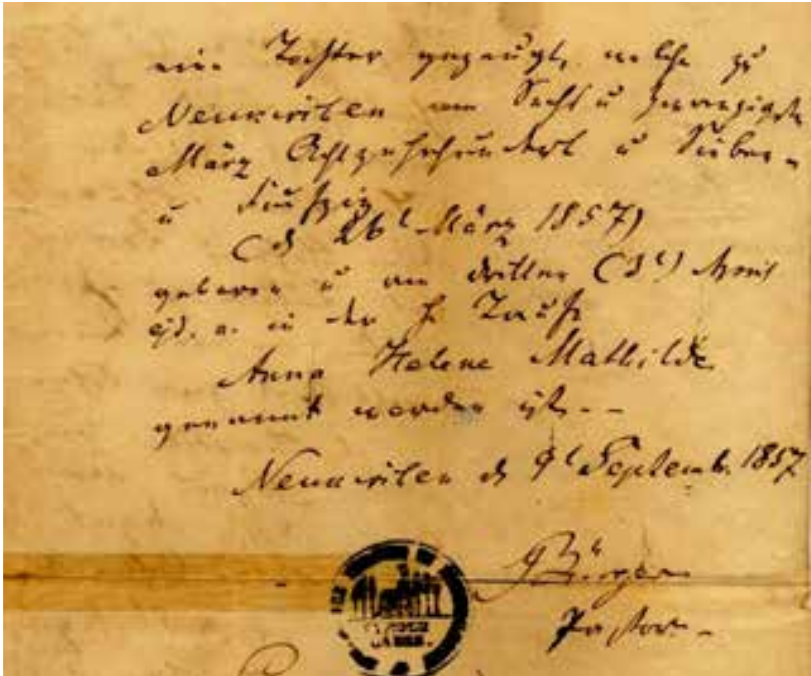 eine Tochter gezeugt, welche zu
Neukirchen am Sechs u zwanzigsten
März Achtzehnhundert u Sieben
u fünfzig
(d 26t März 1857)
geboren u am dritten (3t) April
ejd. a. in der h. Taufe
Anna Helene Mathilde
genannt worden ist. --
d 9t Septemb. 1857
Pastor